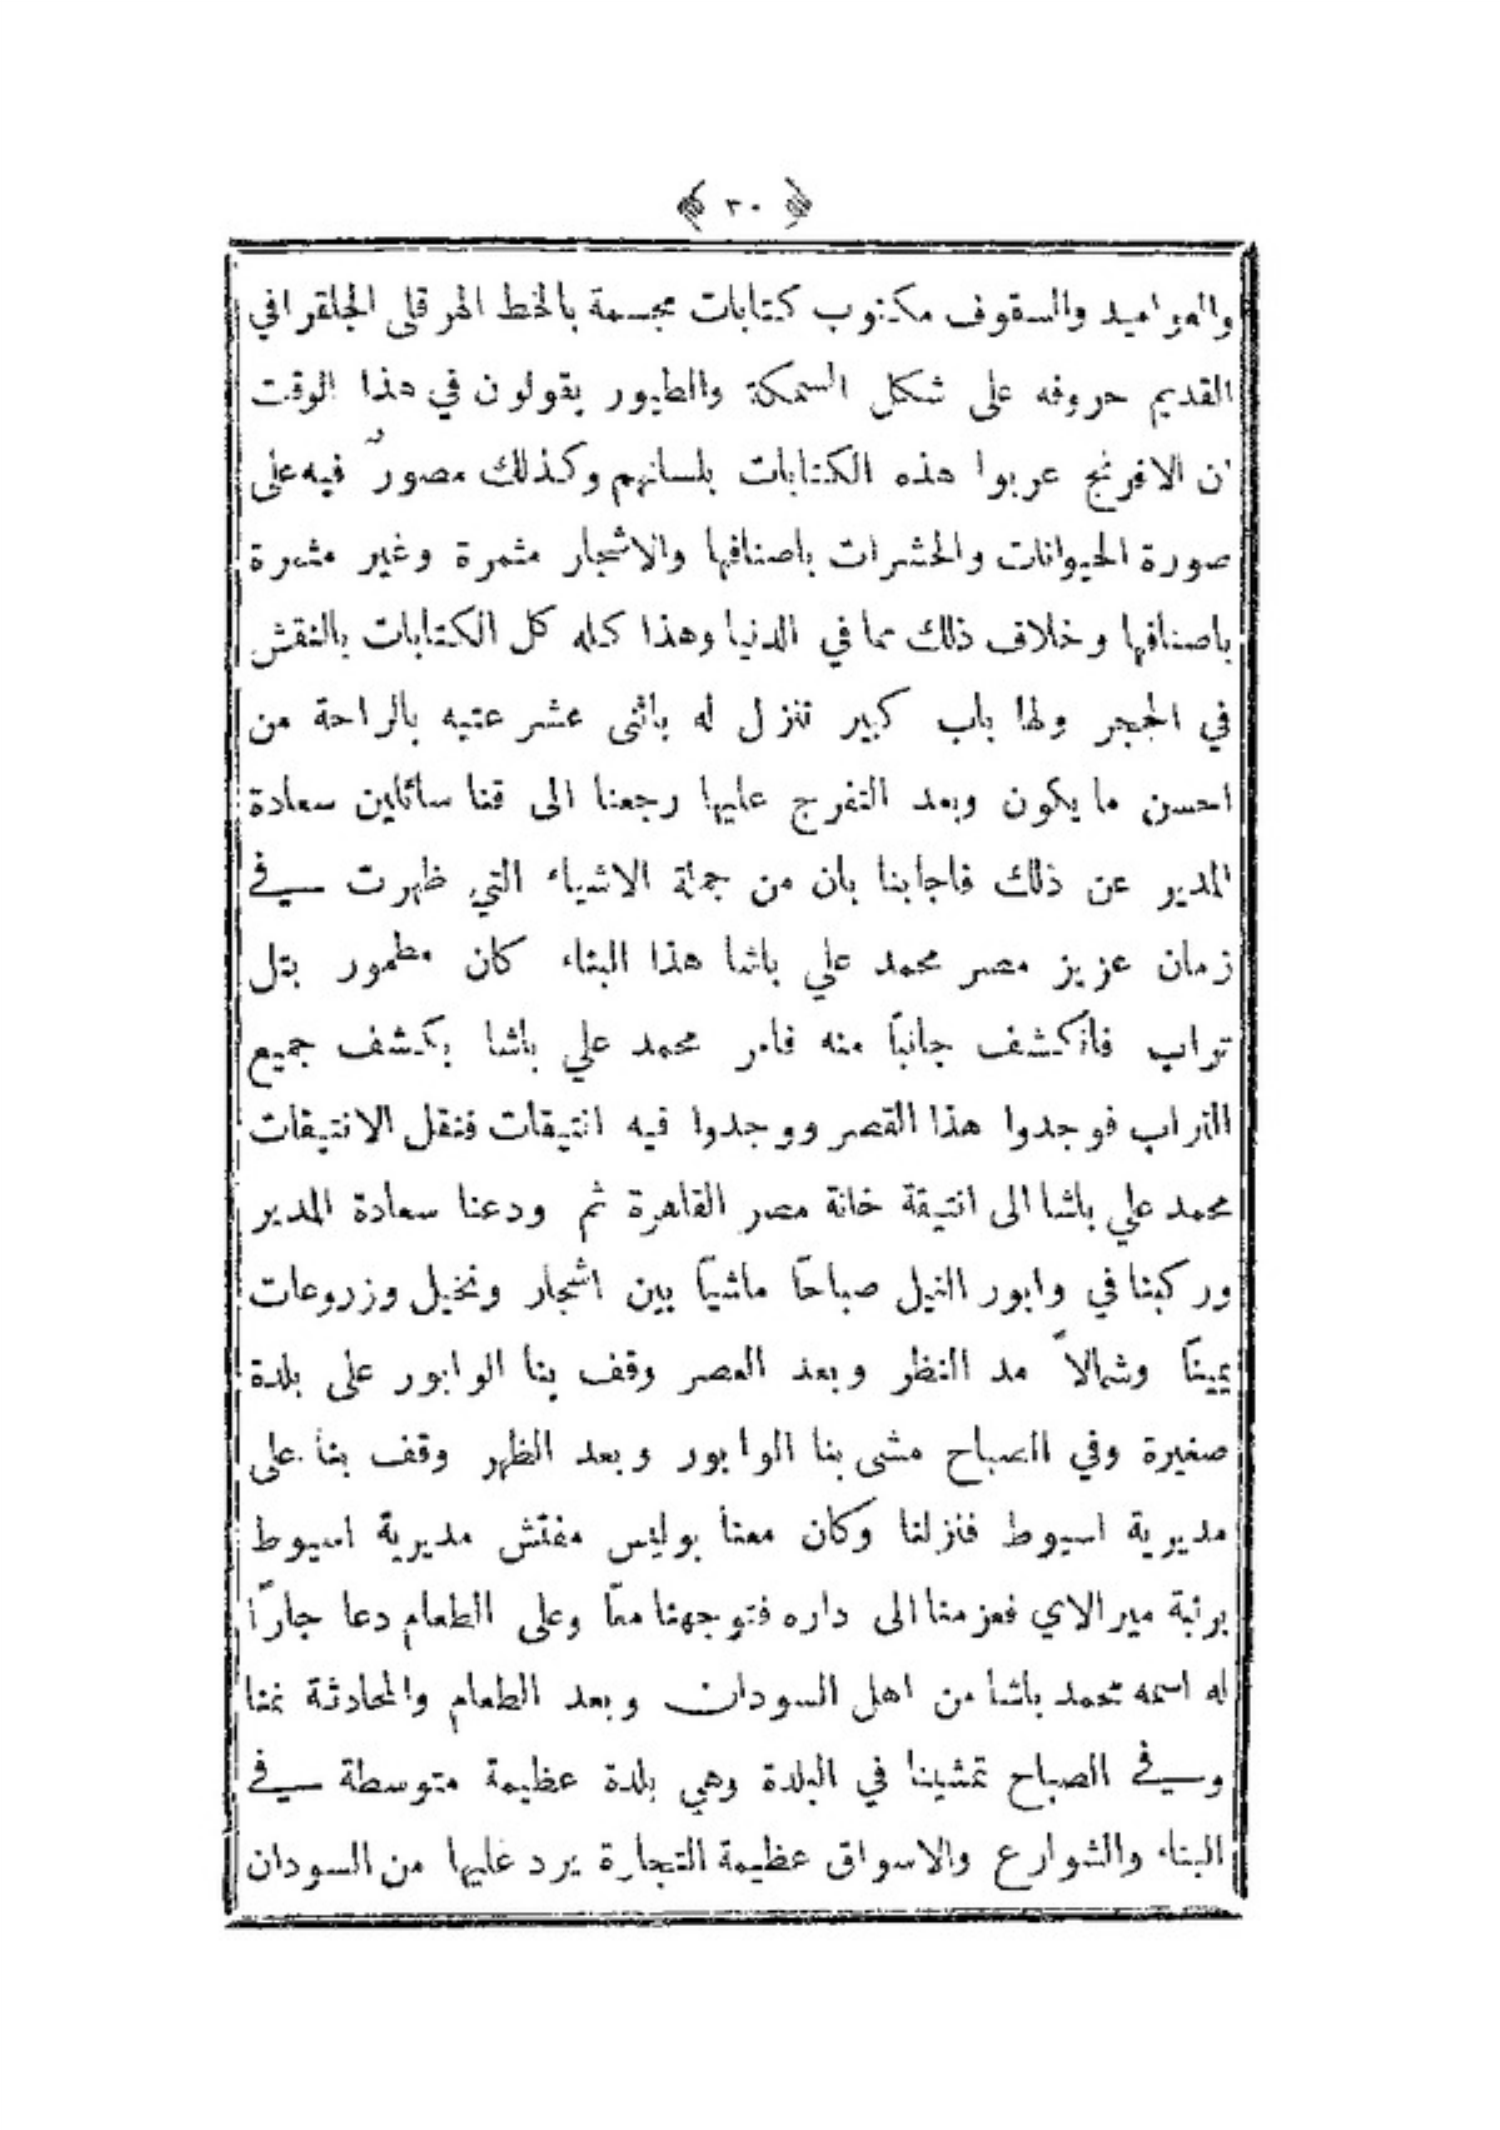 ﴿ ٣٠ ﴾
والعواميد والسقوف مكتوب كتابات مجسمة بالخط الهرقلى الجلقرافي
القديم حروفه على شكل السمكة والطيور يقولون في هذا الوقت
ان الافرنج عربوا هذه الكتابات بلسانهم وكذلك مصورٌ فيه على
صورة الحيوانات والحشرات باصنافها والاشجار مثمرة وغير مثمرة
باصنافها وخلاف ذلك مما في الدنيا وهذا كله كل الكتابات بالنقش
في الحجر ولها باب كبير تنزل له باثنى عشر عتبه بالراحة من
احسن ما يكون وبعد التفرج عليها رجعنا الى قنا سائلين سعادة
المدير عن ذلك فاجابنا بان من جملة الاشياء التي ظهرت في
زمان عزيز مصر محمد علي باشا هذا البناء كان مطمور بتل
تراب فانكشف جانبًا منه فامر محمد علي باشا بكشف جميع
التراب فوجدوا هذا القصر ووجدوا فيه انتيقات فنقل الانتيقات
محمد علي باشا الى انتيقة خانة مصر القاهرة ثم ودعنا سعادة المدير
وركبنا في وابور النيل صباحًا ماشيًا بين اشجار ونخيل وزروعات
يمينًا وشمالاً مد النظر وبعد العصر وقف بنا الوابور على بلدة
صغيرة وفي الصباح مشى بنا الوابور وبعد الظهر وقف بنا على
مديرية اسيوط فنزلنا وكان معنا بوليس مفتش مديرية اسيوط
برتبة ميرالاي فعزمنا الى داره فتوجهنا معًا وعلى الطعام دعا جارًا
له اسمه محمد باشا من اهل السودان وبعد الطعام والمحادثة نمنا
وفي الصباح تمشينا في البلدة وهي بلدة عظيمة متوسطة في
البناء والشوارع والاسواق عظيمة التجارة يرد عليها من السودان